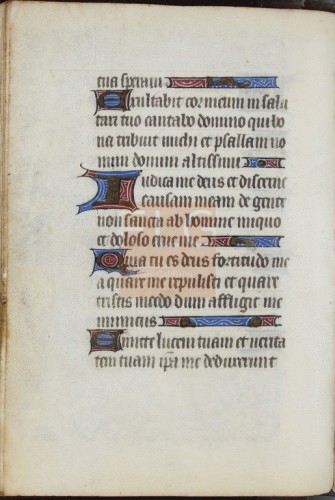 tua speravi
Exultabit cor meum in salu
tari tuo cantabo domino qui bo
na tribuit michi et psallam no
mini domini altissimi
Judica me deus et discerne
causam meam de gente
non sancta ab homine iniquo
et doloso erue me
Quia tu es deus fortitudo me
a quare me repulisti et quare
tristis incedo dum affligit me
inimicus
Emitte lucem tuam et verita
tem tuam ipa me deduxerunt